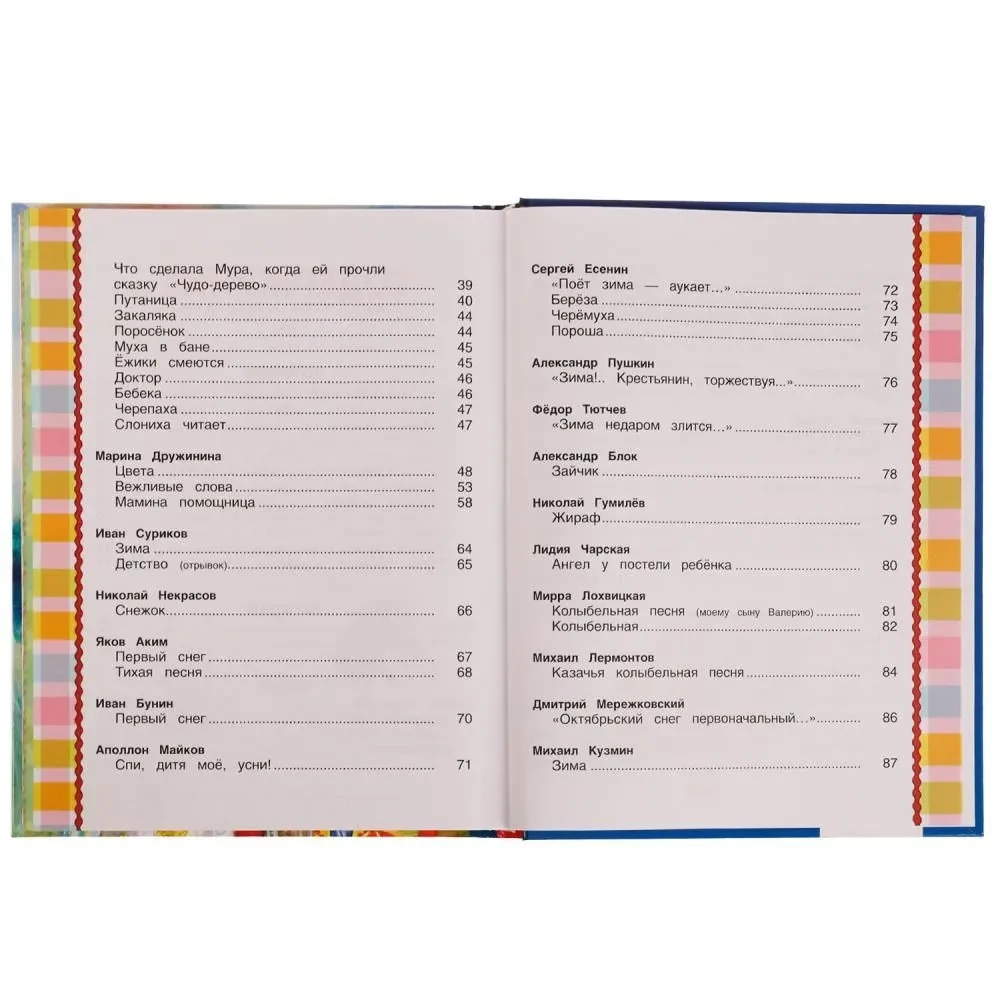 Что сделала Мура, когда ей прочли
сказку «Чудо-дерево».......... 39
Путаница.......... 40
Закаляка.......... 44
Поросёнок.......... 44
Муха в бане.......... 45
Ёжики смеются.......... 45
Доктор.......... 46
Бебека.......... 46
Черепаха.......... 47
Слониха читает.......... 47
Марина Дружинина
Цвета.......... 48
Вежливые слова.......... 53
Мамина помощница.......... 58
Иван Суриков
Зима.......... 64
Детство (отрывок).......... 65
Николай Некрасов
Снежок.......... 66
Яков Аким
Первый снег.......... 67
Тихая песня.......... 68
Иван Бунин
Первый снег.......... 70
Аполлон Майков
Спи, дитя моё, усни!.......... 71
Сергей Есенин
«Поёт зима — аукает...».......... 72
Берёза.......... 73
Черёмуха.......... 74
Пороша.......... 75
Александр Пушкин
«Зима!.. Крестьянин, торжествуя...».......... 76
Фёдор Тютчев
«Зима недаром злится...».......... 77
Александр Блок
Зайчик.......... 78
Николай Гумилёв
Жираф.......... 79
Лидия Чарская
Ангел у постели ребёнка.......... 80
Мирра Лохвицкая
Колыбельная песня (моему сыну Валерию).......... 81
Колыбельная.......... 82
Михаил Лермонтов
Казачья колыбельная песня.......... 84
Дмитрий Мережковский
«Октябрьский снег первоначальный...».......... 86
Михаил Кузмин
Зима.......... 87